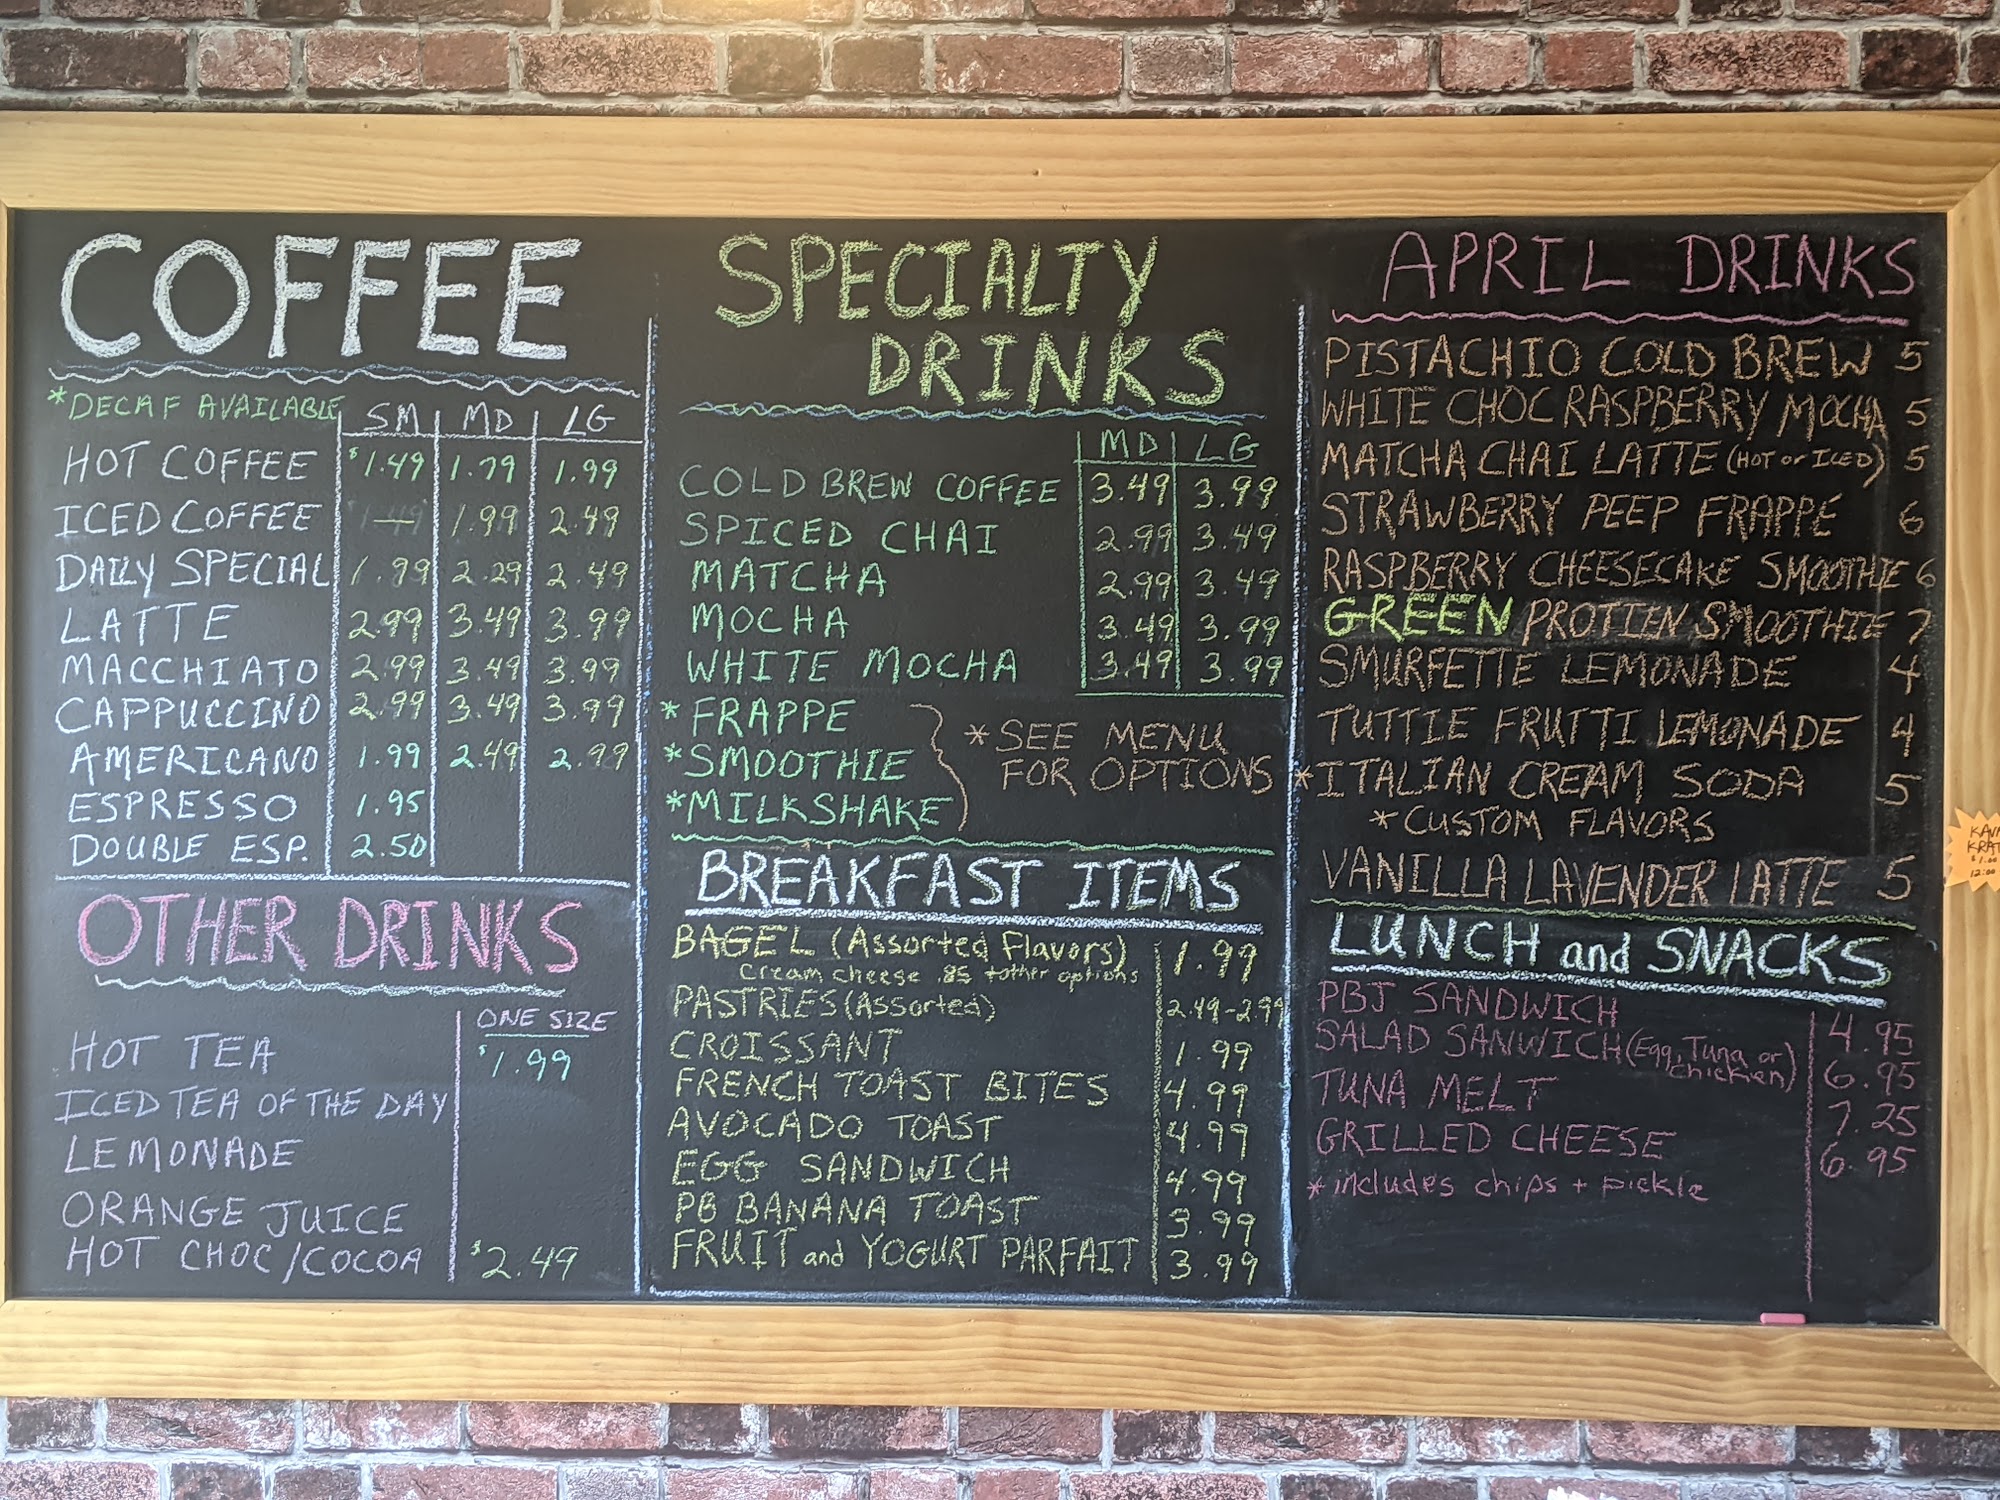 COFFEE
*DECAF AVAILABLE SM MD LG
HOT COFFEE $1.49 1.79 1.99
ICED COFFEE — 1.99 2.49
DAILY SPECIAL 1.99 2.29 2.49
LATTE 2.99 3.49 3.99
MACCHIATO 2.99 3.49 3.99
CAPPUCCINO 2.99 3.49 3.99
AMERICANO 1.99 2.49 2.99
ESPRESSO 1.95
DOUBLE ESP. 2.50
OTHER DRINKS
ONE SIZE
HOT TEA $1.99
ICED TEA OF THE DAY
LEMONADE
ORANGE JUICE
HOT CHOC/COCOA $2.49
SPECIALTY
DRINKS
MD LG
COLD BREW COFFEE 3.49 3.99
SPICED CHAI 2.99 3.49
MATCHA 2.99 3.49
MOCHA 3.49 3.99
WHITE MOCHA 3.49 3.99
*FRAPPE
*SMOOTHIE
*MILKSHAKE
*SEE MENU
FOR OPTIONS
BREAKFAST ITEMS
BAGEL (Assorted Flavors) 1.99
cream cheese .85 + other options
PASTRIES (Assorted) 2.49-2.99
CROISSANT 1.99
FRENCH TOAST BITES 4.99
AVOCADO TOAST 4.99
EGG SANDWICH 4.99
PB BANANA TOAST 3.99
FRUIT and YOGURT PARFAIT 3.99
APRIL DRINKS
PISTACHIO COLD BREW 5
WHITE CHOC RASPBERRY MOCHA 5
MATCHA CHAI LATTE (HOT or ICED) 5
STRAWBERRY PEEP FRAPPE 6
RASPBERRY CHEESECAKE SMOOTHIE 6
GREEN PROTIEN SMOOTHIE 7
SMURFETTE LEMONADE 4
TUTTIE FRUTTI LEMONADE 4
*ITALIAN CREAM SODA 5
*CUSTOM FLAVORS
VANILLA LAVENDER LATTE 5
LUNCH and SNACKS
PBJ SANDWICH 4.95
SALAD SANWICH (Egg, Tuna or
chicken) 6.95
TUNA MELT 7.25
GRILLED CHEESE 6.95
*includes chips + pickle
12:00